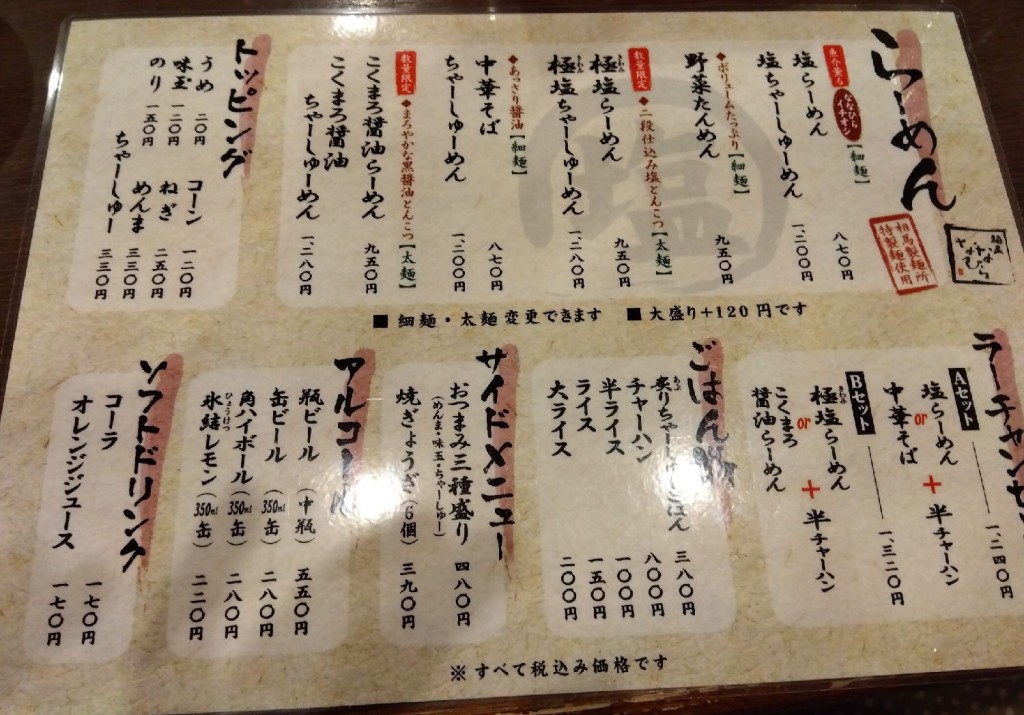 らーめん
魚介薫る
ななひらイチオシ
【細麺】
塩らーめん 八七〇円
塩ちゃーしゅーめん 一、二〇〇円
◆ボリュームたっぷり【細麺】
野菜たんめん 九五〇円
数量限定 ◆二段仕込み塩とんこつ【太麺】
極塩らーめん 九五〇円
極塩ちゃーしゅーめん 一、二八〇円
◆あっさり醤油【細麺】
中華そば 八七〇円
ちゃーしゅーめん 一、二〇〇円
数量限定 ◆まろやかな黒醤油とんこつ【太麺】
こくまろ醤油らーめん 九五〇円
こくまろ醤油
ちゃーしゅーめん 一、二八〇円
塩
相馬製麺所
特製麺使用
トッピング
うめ 二〇円
味玉 一二〇円
のり 一五〇円
コーン 一二〇円
ねぎ 二五〇円
めんま 三三〇円
ちゃーしゅー 三三〇円
■ 細麺・太麺変更できます ■ 大盛り+120円です
ラーチャンセ
Aセット 一、二四〇円
塩らーめん
or
中華そば
+ 半チャーハン
Bセット 一、三二〇円
極塩らーめん
or
こくまろ
醤油らーめん
+ 半チャーハン
ごはん
炙りちゃーしゅーごはん 三八〇円
チャーハン 八〇〇円
半ライス 一〇〇円
ライス 一五〇円
大ライス 二〇〇円
サイドメニュー
おつまみ三種盛り 四八〇円
(めんま・味玉・ちゃーしゅー)
焼ぎょうざ(6個) 三九〇円
アルコール
瓶ビール(中瓶) 五五〇円
缶ビール(350ml缶) 二八〇円
角ハイボール(350ml缶) 二八〇円
氷結レモン(350ml缶) 二二〇円
ソフトドリンク
コーラ 一七〇円
オレンジジュース 一七〇円
※すべて税込み価格です